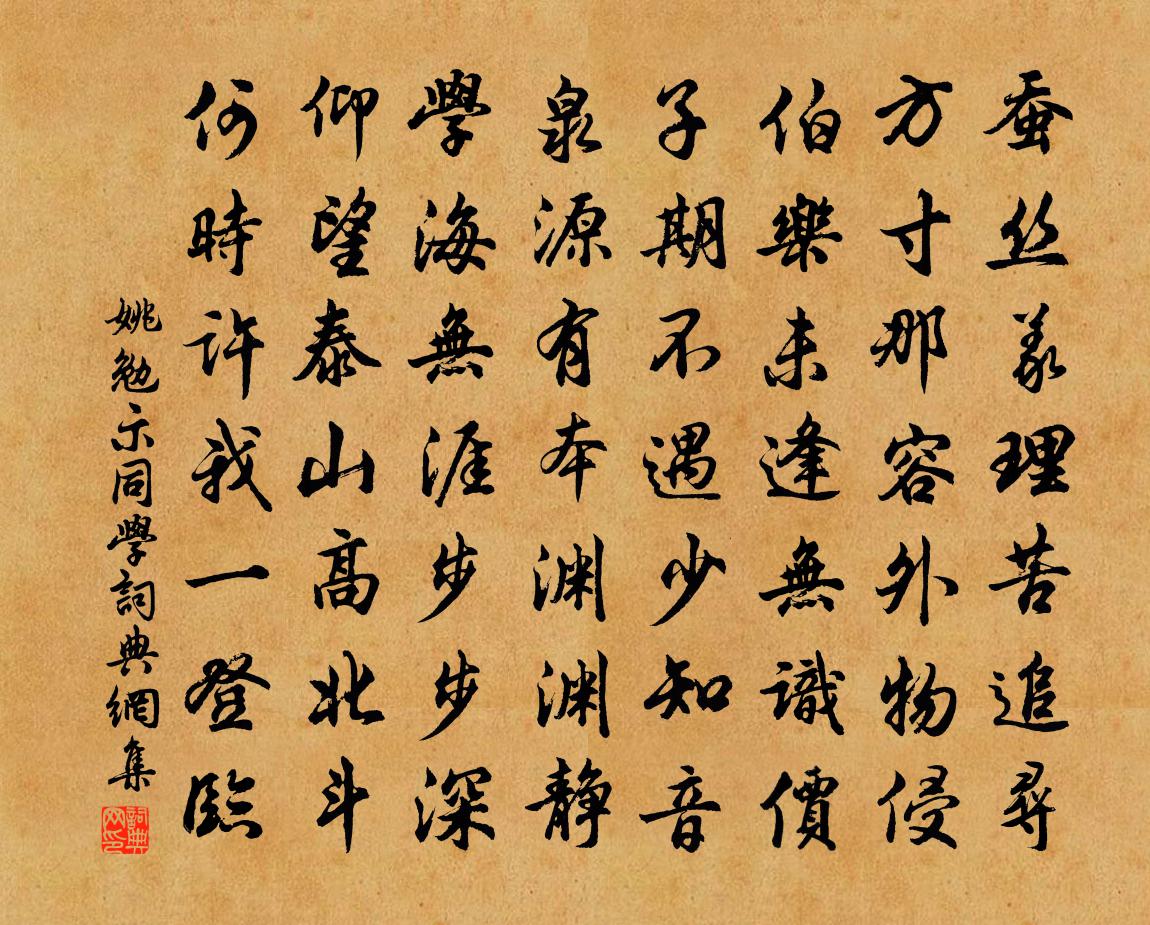 蚕丝義理苦追尋
方寸那容外物侵
伯樂未逢無識價
子期不遇少知音
泉源有本渊渊静
學海無涯步步深
仰望泰山高北斗
何時許我一登臨
姚勉示同學詞典網集
詞典网印